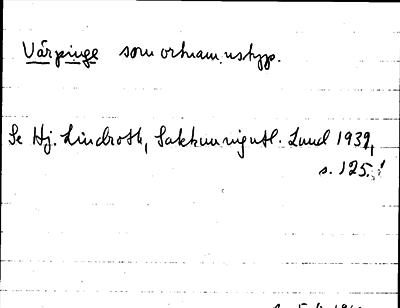 Värpinge som ortnamnstyp.
Se Hj. Lindroth, Sakkunnigutl. Lund 1939,
s. 125.